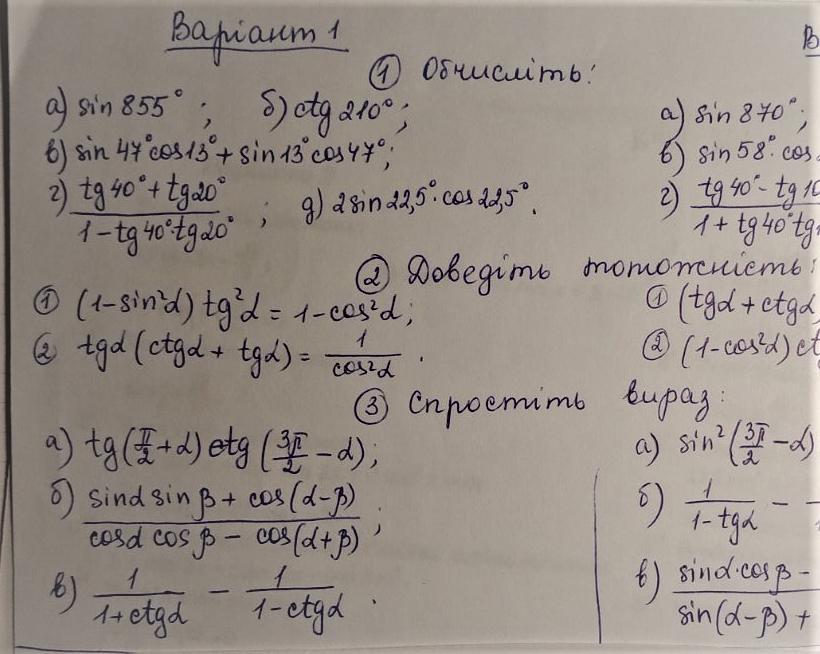 Варіант 1
В
① Обчисліть:
а) sin 855°; б) ctg 210°;
в) sin 47° cos 13° + sin 13° cos 47°;
г) (tg 40° + tg 20°)/(1 – tg 40° tg 20°); д) 2 sin 22,5° · cos 22,5°.
а) sin 870°;
в) sin 58° · cos
г) tg 40° – tg 10
1 + tg 40° tg
② Доведіть тотожність:
① (1 – sin²α) tg²α = 1 – cos²α;
② tgα (ctgα + tgα) = 1/cos²α.
① (tgα + ctgα
② (1 – cos²α) ct
③ Спростіть вираз:
а) tg(π/2 + α) ctg(3π/2 – α);
б) (sinα sin β + cos(α – β))/(cosα cos β – cos(α + β));
в) 1/(1 + ctgα) – 1/(1 – ctgα).
а) sin²(3π/2 – α)
б) 1/(1 – tgα) –
в) sinα · cos β –
sin(α – β) +